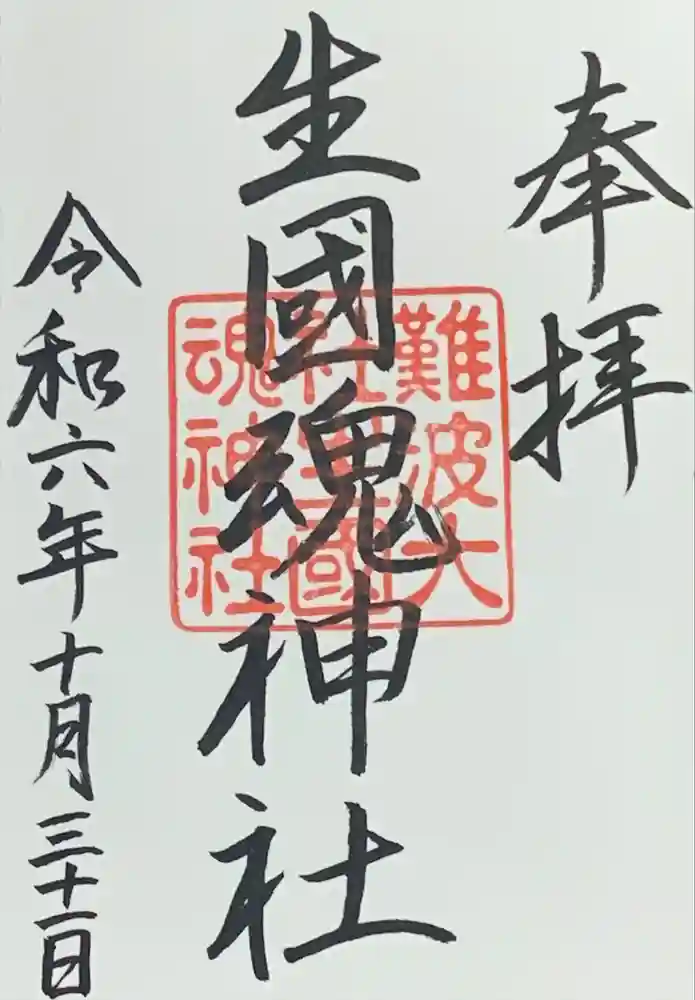 奉拝
生國魂神社
難波大
社生國
魂神社
令和六年十月三十一日